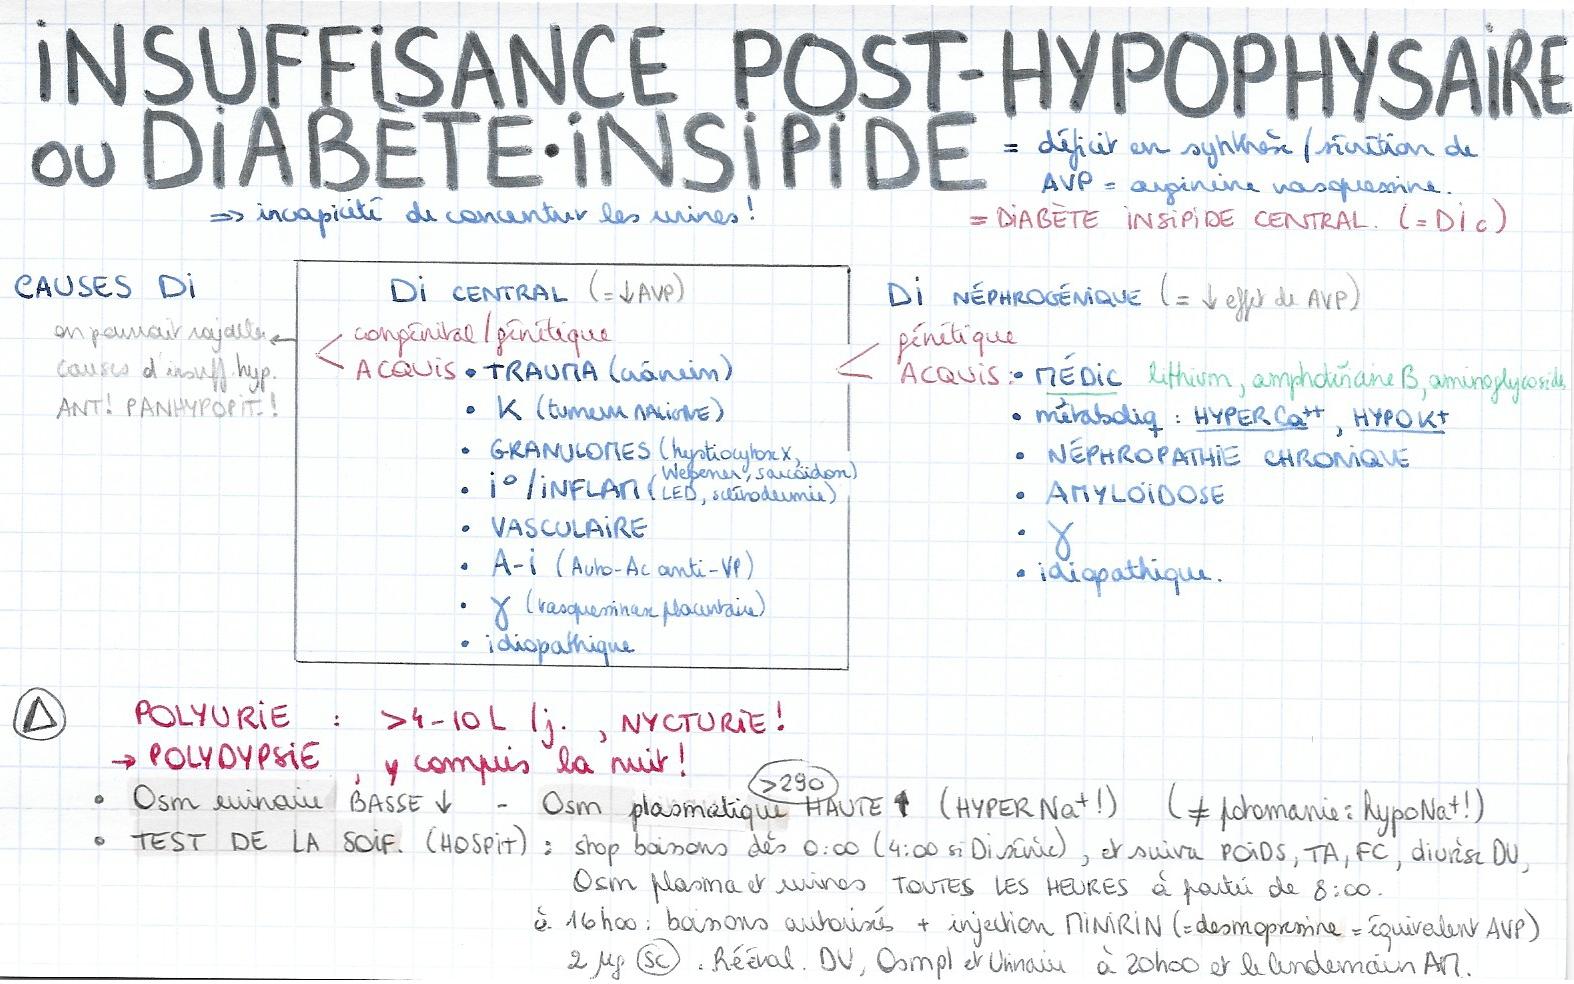 iNSUFFiSANCE POST-HYPOPHYSAiRE
OU DiABÈTE·iNSiPiDE
= déficit en synthèse/sécrétion de
AVP = arginine vasopressine.
⇒ incapicité de concentrer les urines!
= DiABÈTE iNSiPiDE CENTRAL. (= Di c)
CAUSES Di
Di CENTRAL (= ↓ AVP)
Di NÉPHROGÉNiQUE (= ↓ effet de AVP)
on pourrait rajouter
causes d'insuff. hyp.
ANT! PANHYPOPIT.!
congénital/génétique
ACQUiS • TRAUMA (crânien)
• K (tumeur MALIGNE)
• GRANULOMES (hystiocytose X,
Wegener, sarcoïdose)
• i°/iNFLAM (LED, sclérodermie)
• VASCULAiRE
• A-i (Auto-Ac anti-VP)
• γ (vasopressinase placentaire)
• idiopathique
génétique
ACQUiS : • MÉDiC lithium, amphotéricine B, aminoglycoside
• métaboliq : HYPER Ca++, HYPO K+
• NÉPHROPATHiE CHRONiQUE
• AMYLOÏDOSE
• γ
• idiopathique.
Δ
POLYURiE : >4-10 L /j. , NYCTURiE!
→ POLYDYPSiE , y compris la nuit!
>290
• Osm urinaire BASSE ↓ - Osm plasmatique HAUTE ↑ (HYPER Na+!) (≠ potomanie : hypoNa+!)
• TEST DE LA SOiF. (HOSPiT) : stop boissons dès 0:00 (4:00 si Di sévère), et suivre POiDS, TA, FC, diurèse DU,
Osm plasma et urines TOUTES LES HEURES à partir de 8:00.
à 16h00 : boissons autorisées + injection MiNiRiN (= desmopressine = équivalent AVP)
2 µg SC. Rééval. DU, Osmpl et Urinaire à 20h00 et le lendemain AM.